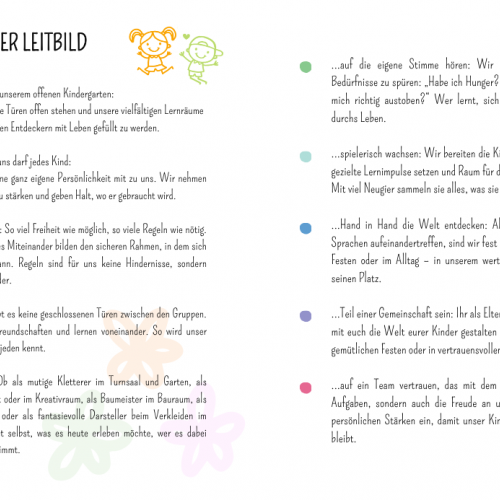 ER LEITBILD
unserem offenen Kindergarten:
e Türen offen stehen und unsere vielfältigen Lernräume
en Entdeckern mit Leben gefüllt zu werden.
uns darf jedes Kind:
ne ganz eigene Persönlichkeit mit zu uns. Wir nehmen
zu stärken und geben Halt, wo er gebraucht wird.
: So viel Freiheit wie möglich, so viele Regeln wie nötig.
es Miteinander bilden den sicheren Rahmen, in dem sich
ann. Regeln sind für uns keine Hindernisse, sondern
der.
t es keine geschlossenen Türen zwischen den Gruppen.
reundschaften und lernen voneinander. So wird unser
jeden kennt.
Ob als mutige Kletterer im Turnsaal und Garten, als
t oder im Kreativraum, als Baumeister im Bauraum, als
oder als fantasievolle Darsteller beim Verkleiden im
t selbst, was es heute erleben möchte, wer es dabei
immt.
...auf die eigene Stimme hören: Wir
Bedürfnisse zu spüren: „Habe ich Hunger?
mich richtig austoben?" Wer lernt, sich
durchs Leben.
...spielerisch wachsen: Wir bereiten die Ki
gezielte Lernimpulse setzen und Raum für d
Mit viel Neugier sammeln sie alles, was sie
...Hand in Hand die Welt entdecken: Al
Sprachen aufeinandertreffen, sind wir fest
Festen oder im Alltag – in unserem wert
seinen Platz.
...Teil einer Gemeinschaft sein: Ihr als Elte
mit euch die Welt eurer Kinder gestalten
gemütlichen Festen oder in vertrauensvoller
...auf ein Team vertrauen, das mit dem
Aufgaben, sondern auch die Freude an u
persönlichen Stärken ein, damit unser Kin
bleibt.